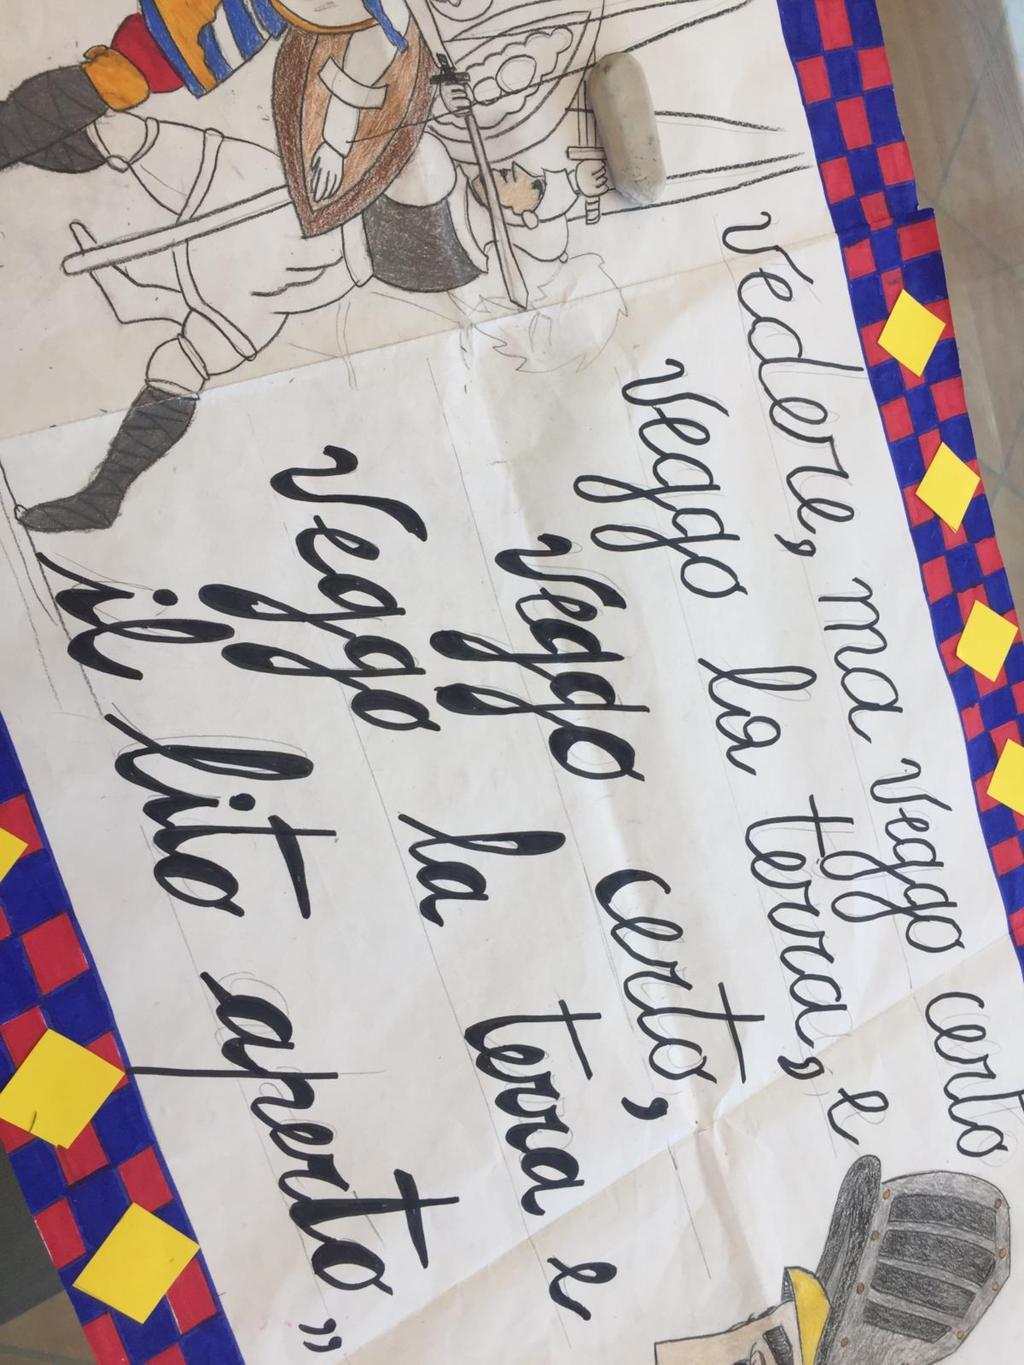 vedere, ma veggo certo
veggo la terra, e
veggo certo,
veggo la terra e
il lito aperto"